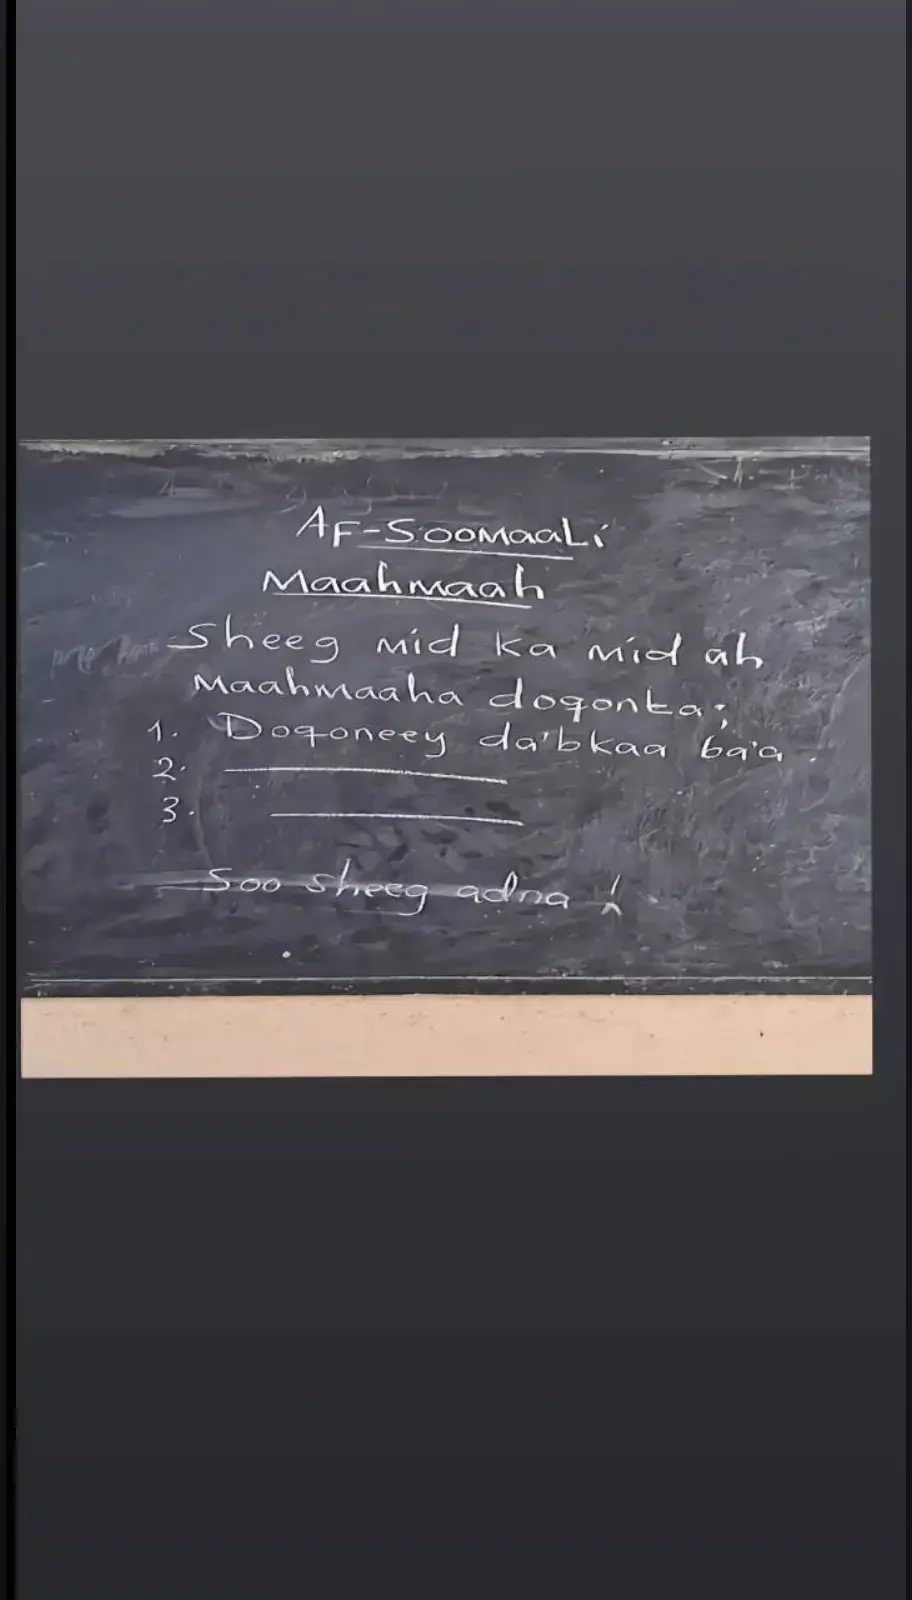 AF-SOOMAALi
Maahmaah
Sheeg mid ka mid ah
Maahmaaha doqonta;
1. Doqoneey da'bkaa ba'a
2.
3.
Soo sheeg adna !